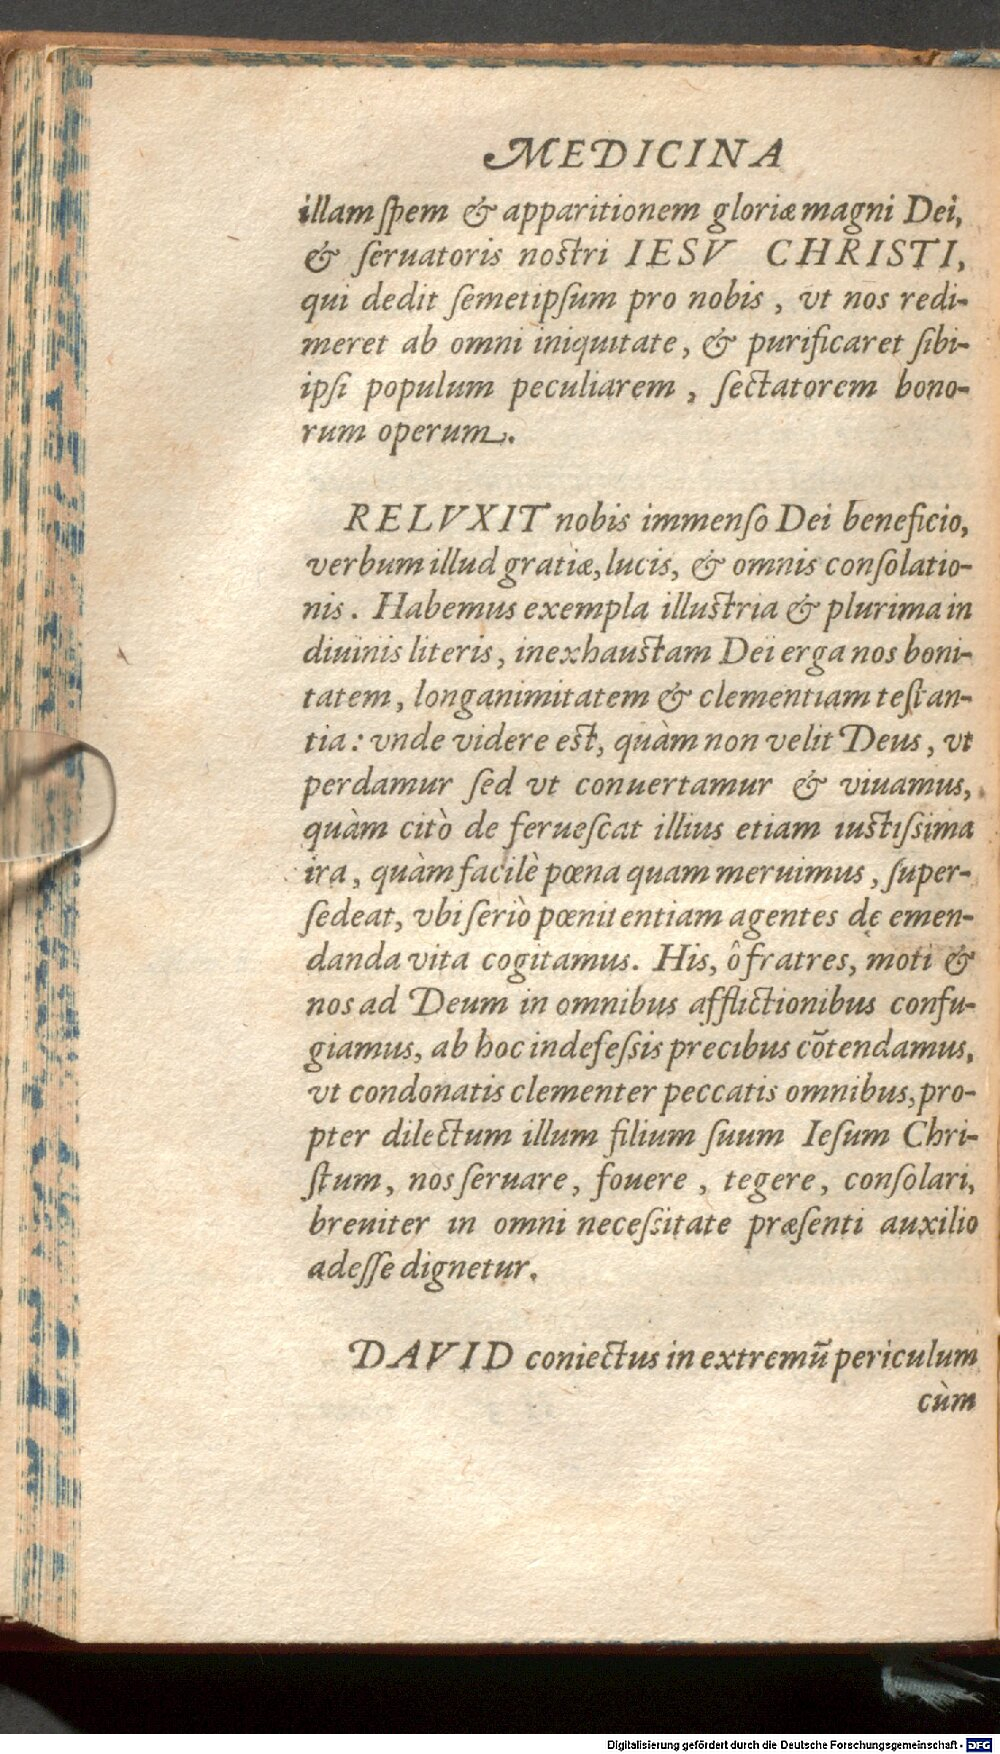 MEDICINA
illam ſpem & apparitionem gloriæ magni Dei,
& ſeruatoris noſtri IESV CHRISTI,
qui dedit ſemetipſum pro nobis, vt nos redi-
meret ab omni iniquitate, & purificaret ſibi-
ipſi populum peculiarem, ſectatorem bono-
rum operum.
RELVXIT nobis immenſo Dei beneficio,
verbum illud gratiæ, lucis, & omnis conſolatio-
nis. Habemus exempla illuſtria & plurima in
diuinis literis, inexhauſtam Dei erga nos boni-
tatem, longanimitatem & clementiam teſtan-
tia: vnde videre eſt, quàm non velit Deus, vt
perdamur ſed vt conuertamur & viuamus,
quàm citò de ferueſcat illius etiam iuſtiſsima
ira, quàm facilè pœna quam meruimus, ſuper-
ſedeat, vbi ſeriò pœnitentiam agentes de emen-
danda vita cogitamus. His, ô fratres, moti &
nos ad Deum in omnibus afflictionibus confu-
giamus, ab hoc indefeſsis precibus cõtendamus,
vt condonatis clementer peccatis omnibus, pro-
pter dilectum illum filium ſuum Ieſum Chri-
ſtum, nos ſeruare, fouere, tegere, conſolari,
breuiter in omni neceſsitate præſenti auxilio
adeſſe dignetur.
DAVID coniectus in extremũ periculum
cùm
Digitalisierung gefördert durch die Deutsche Forschungsgemeinschaft - DFG